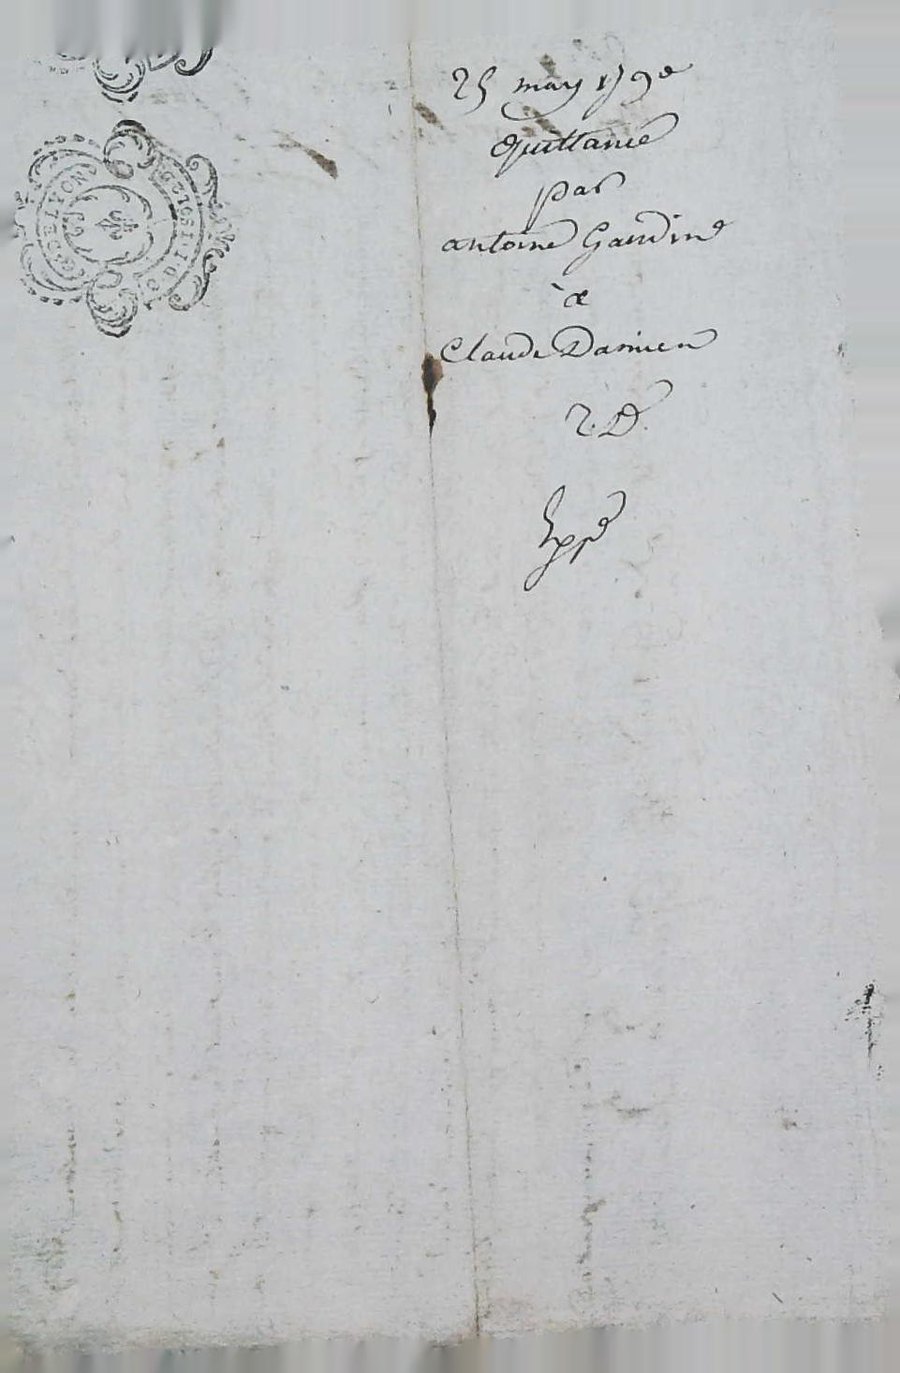 25 may 1790
Quittance
par
antoine Gaudin
à
Claude Damien
2. D.
Exp.é
G. DE LYON